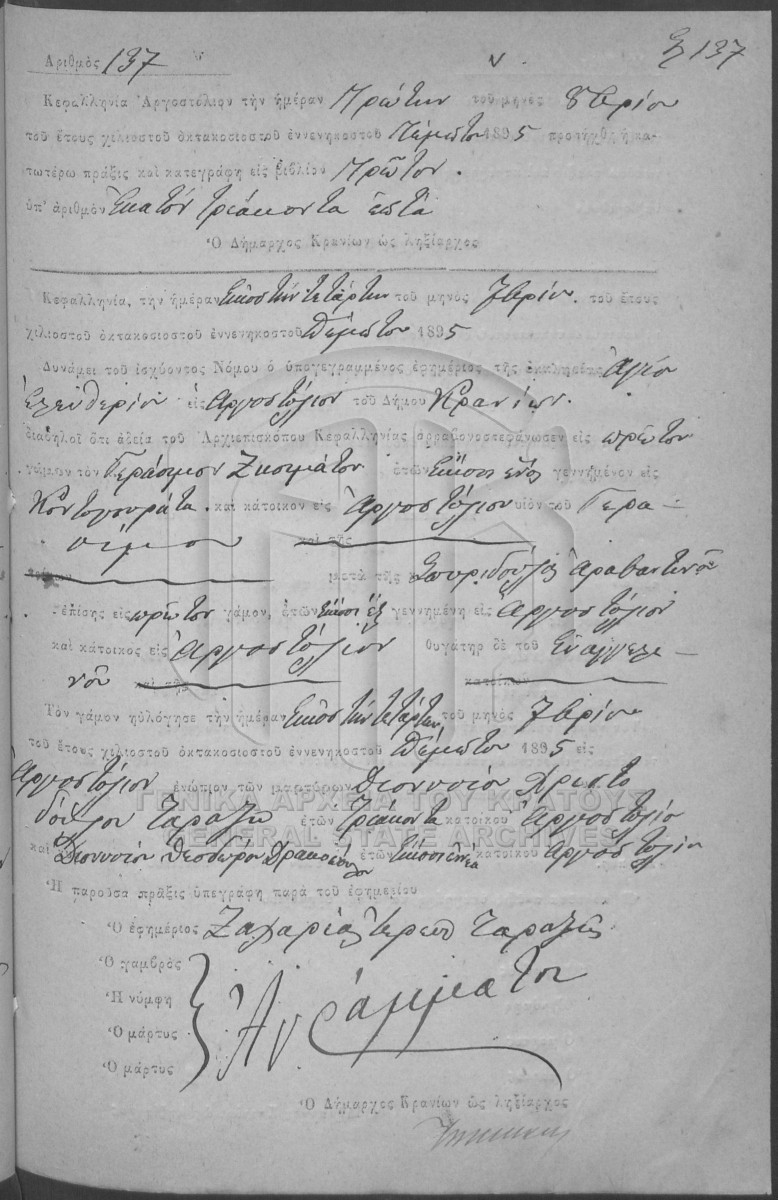 137
Ἀριθμὸς 137
Κεφαλληνία Ἀργοστόλιον τὴν ἡμέραν Πρώτην τοῦ μηνὸς 8βρίου
τοῦ ἔτους χιλιοστοῦ ὀκτακοσιοστοῦ ἐννενηκοστοῦ Πέμπτου 1895 προσήχθη ἡ κα-
τωτέρω πράξις καὶ κατεγράφη εἰς βιβλίον Πρῶτον.
ὑπ' ἀριθμὸν Ἑκατόν τριάκοντα ἑπτά
Ὁ Δήμαρχος Κρανίων ὡς ληξίαρχος
Κεφαλληνία, τὴν ἡμέραν Εἰκοστήν τετάρτην τοῦ μηνος 7βρίου. τοῦ ἔτους
χιλιοστοῦ ὀκτακοσιοστοῦ ἐννενηκοστοῦ Πέμπτου 1895
Δυνάμει τοῦ ἰσχύοντος Νόμου ὁ ὑπογεγραμμένος ἐφημέριος τῆς ἐκκλησίας Ἁγίου
Ἐλευθερίου εἰς Ἀργοστόλιον τοῦ Δήμου Κρανίων.
διαδηλοῖ ὅτι ἀδείᾳ τοῦ Ἀρχιεπισκόπου Κεφαλληνίας ἀρραβονοστεφάνωσεν εἰς πρῶτον
γάμον τὸν Γεράσιμον Ζησιμάτον ἐτῶν Εἴκοσι ἑνός γεννημένον εἰς
Κοντογουράτα. καὶ κάτοικον εἰς Ἀργοστόλιον υἱὸν τοῦ Γερα-
σίμου καὶ τῆς
μετὰ τῆς Σπυριδούλας Ἀραβαντινοῦ
ἐπίσης εἰς πρῶτον γάμον, ἐτῶν Εἴκοσι ἕξ γεννημένη εἰς Ἀργοστόλιον
καὶ κάτοικος εἰς Ἀργοστόλιον θυγάτηρ δὲ τοῦ Εὐαγγελι-
νοῦ καὶ τῆς
Τὸν γάμον ηὐλόγησε τὴν ἡμέραν Εἰκοστήν τετάρτην τοῦ μηνὸς 7βρίου
τοῦ ἔτους χιλιοστοῦ ὀκτακοσιοστοῦ ἐννενηκοστοῦ Πέμπτου 1895 εἰς
Ἀργοστόλιον ἐνώπιον τῶν μαρτύρων Διονυσίου Χριστο
δούλου Ταραζῆ ἐτῶν Τριάκοντα κατοίκου Ἀργοστολίου
ΓΕΝΙΚΑ ΑΡΧΕΙΑ ΤΟΥ ΚΡΑΤΟΥΣ
GENERAL STATE ARCHIVES
καὶ Διονυσίου ἐτῶν Εἴκοσι ἐννέα κατοίκου Ἀργοστολίου
Ἡ παροῦσα πράξις ὑπεγράφη παρὰ τοῦ ἐφημερίου
Ὁ ἐφημέριος Ζαχαρίας Ἱερεύς Ταραζῆς
Ὁ γαμβρὸς
Ἡ νύμφη
Ὁ μάρτυς
Ὁ μάρτυς
Ἀγράμματοι
Ὁ Δήμαρχος Κρανίων ὡς ληξίαρχος